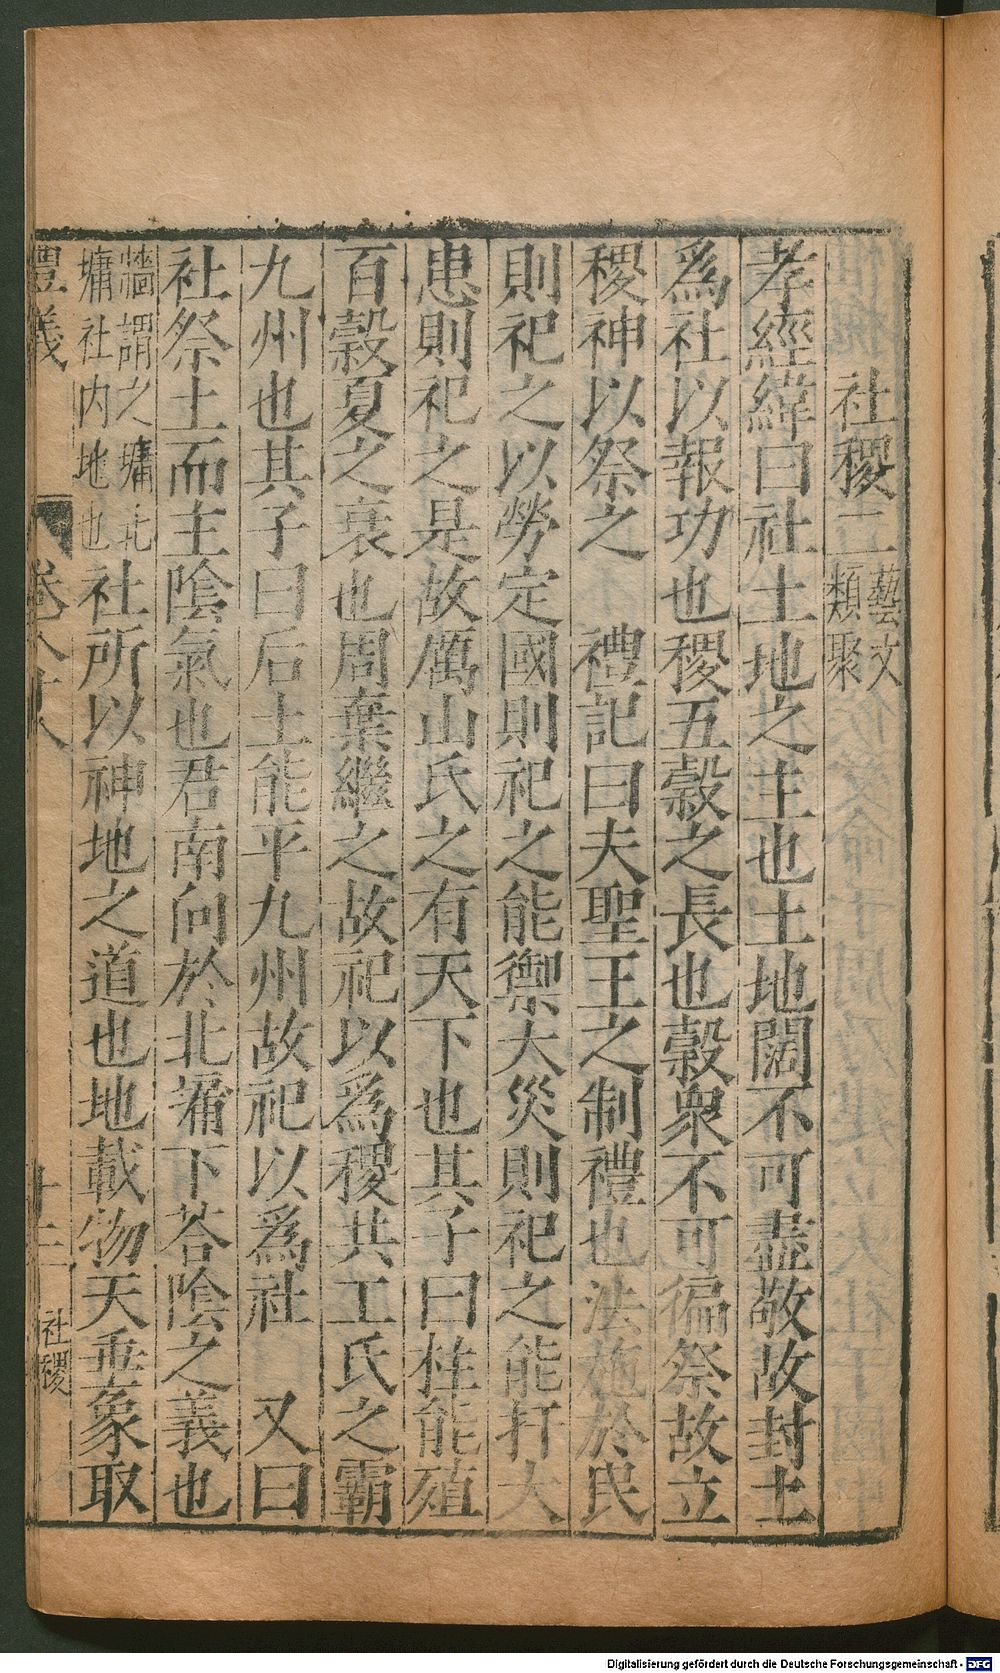 社稷二藝文類聚
孝經緯曰社土地之主也土地闊不可盡敬故封土
爲社以報功也稷五穀之長也穀衆不可徧祭故立
稷神以祭之　禮記曰夫聖王之制禮也法施於民
則祀之以勞定國則祀之能禦大災則祀之能打大
患則祀之是故厲山氏之有天下也其子曰柱能殖
百穀夏之衰也周棄繼之故祀以爲稷共工氏之霸
九州也其子曰后土能平九州故祀以爲社　又曰
社祭土而主陰氣也君南向於北墉下荅陰之義也
牆謂之墉北
墉社内地也
社所以神地之道也地載物天垂象取
禮義
卷八十八
十三
社稷
Digitalisierung gefördert durch die Deutsche Forschungsgemeinschaft - DFG